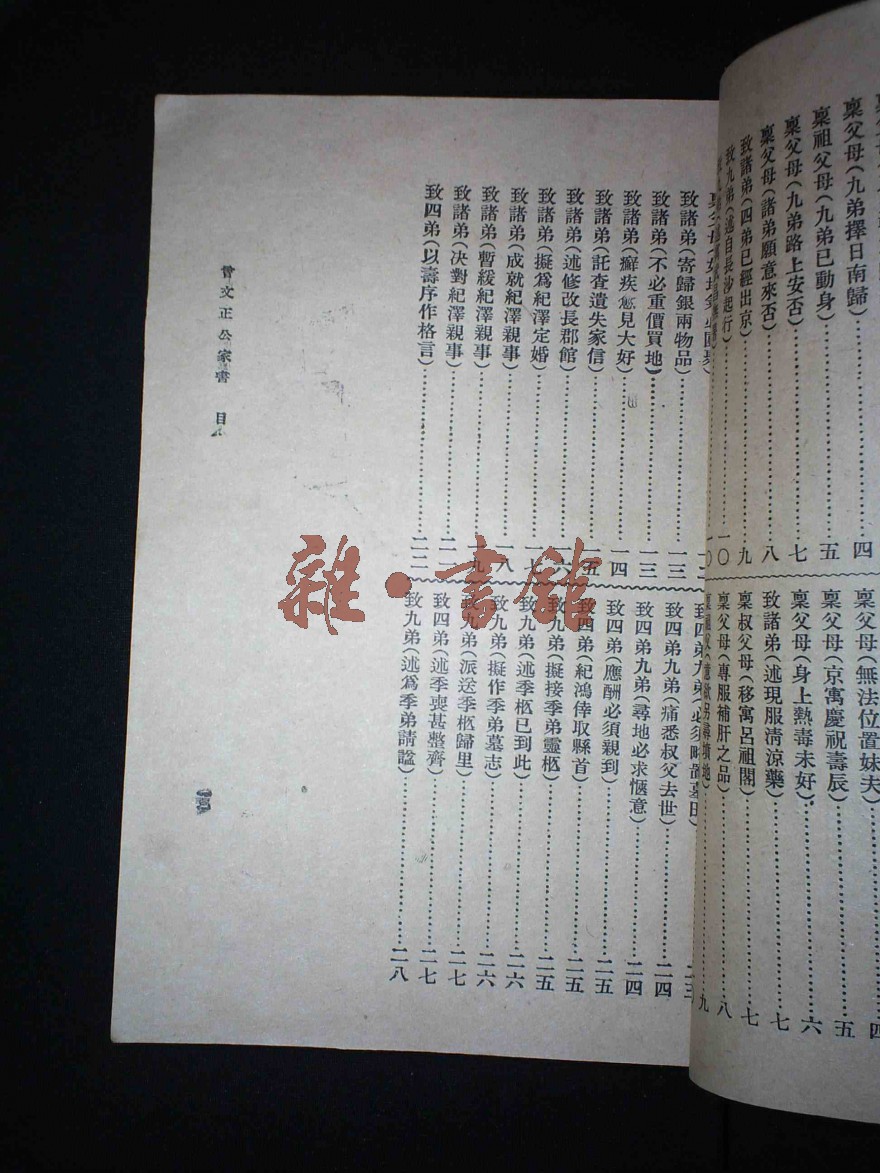 稟父母(九弟擇日南歸)……四
稟祖父母(九弟已動身)……五
稟父母(九弟路上安否)……七
稟父母(諸弟願意來否)……八
致諸弟(四弟已經出京)……九
致九弟(述自長沙起行)……一〇
稟父母(無法位置妹夫)……四
稟父母(京寓慶祝壽辰)……五
稟父母(身上熱毒未好)……六
致諸弟(述現服清涼藥)……七
稟叔父母(移寓呂祖閣)……七
稟父母(專服補肝之品)……八
致諸弟(寄歸銀兩物品)……一三
致諸弟(不必重價買地)……一三
致諸弟(癬疾愈見大好)……一四
致諸弟(託查遺失家信)……一五
致諸弟(述修改長郡館)……一六
致諸弟(擬爲紀澤定婚)……一七
致諸弟(成就紀澤親事)……一八
致諸弟(暫緩紀澤親事)……一九
致諸弟(決對紀澤親事)……二一
致四弟(以壽序作格言)……二二
致四弟九弟(必須
致四弟九弟(痛悉叔父去世)……二四
致四弟九弟(尋地必求愜意)……二四
致四弟(應酬必須親到)……二五
致四弟(紀鴻倖取縣首)……二五
致九弟(擬接季弟靈柩)……二五
致九弟(述季柩已到此)……二六
致九弟(擬作季弟墓志)……二六
致九弟(派送季柩歸里)……二七
致四弟(述季喪甚整齊)……二七
致九弟(述爲季弟請諡)……二八
曾文正公家書 目
雜·書館